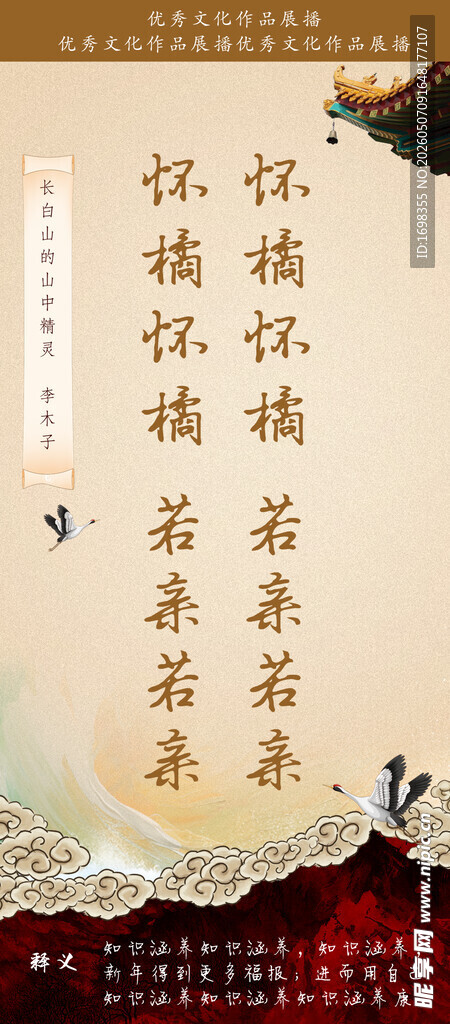 优秀文化作品展播
优秀文化作品展播优秀文化作品展播
长白山的山中精灵 李木子
怀橘怀橘 若亲若亲
怀橘怀橘 若亲若亲
释义
知识涵养知识涵养，知识涵养
新年得到更多福报；进而用自
知识涵养知识涵养知识涵养康
ID:1698355 NO:20260507091648177107
昵享网 www.nipic.cn